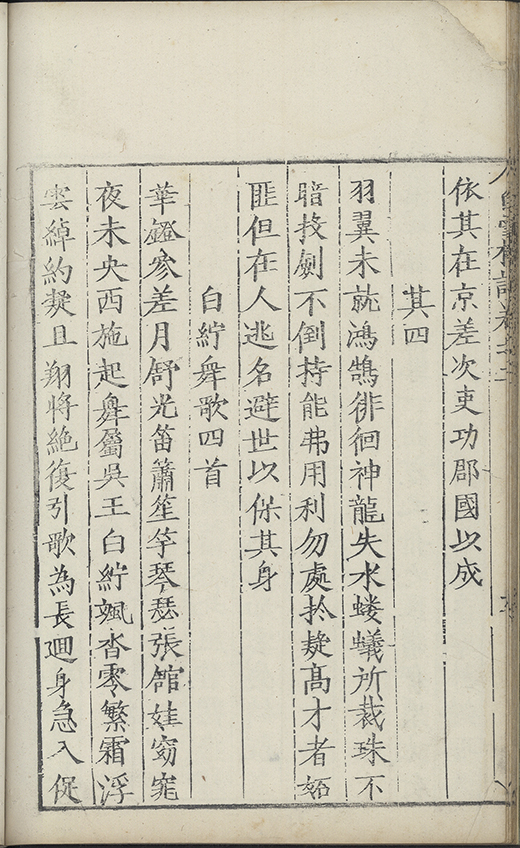 依其在京差次吏功郡國以成
其四
羽翼未就鴻鵠徘徊神龍失水螻蟻所裁珠不
暗投劍不倒持能弗用利勿處於疑高才者妬
匪但在人逃名避世以保其身
白紵舞歌四首
華鐙參差月舒光笛簫笙竽琴瑟張館娃窈窕
夜未央西施起舞屬吳王白紵颯沓零繁霜浮
雲綽約凝且翔將絶復引歌為長迴身急入促